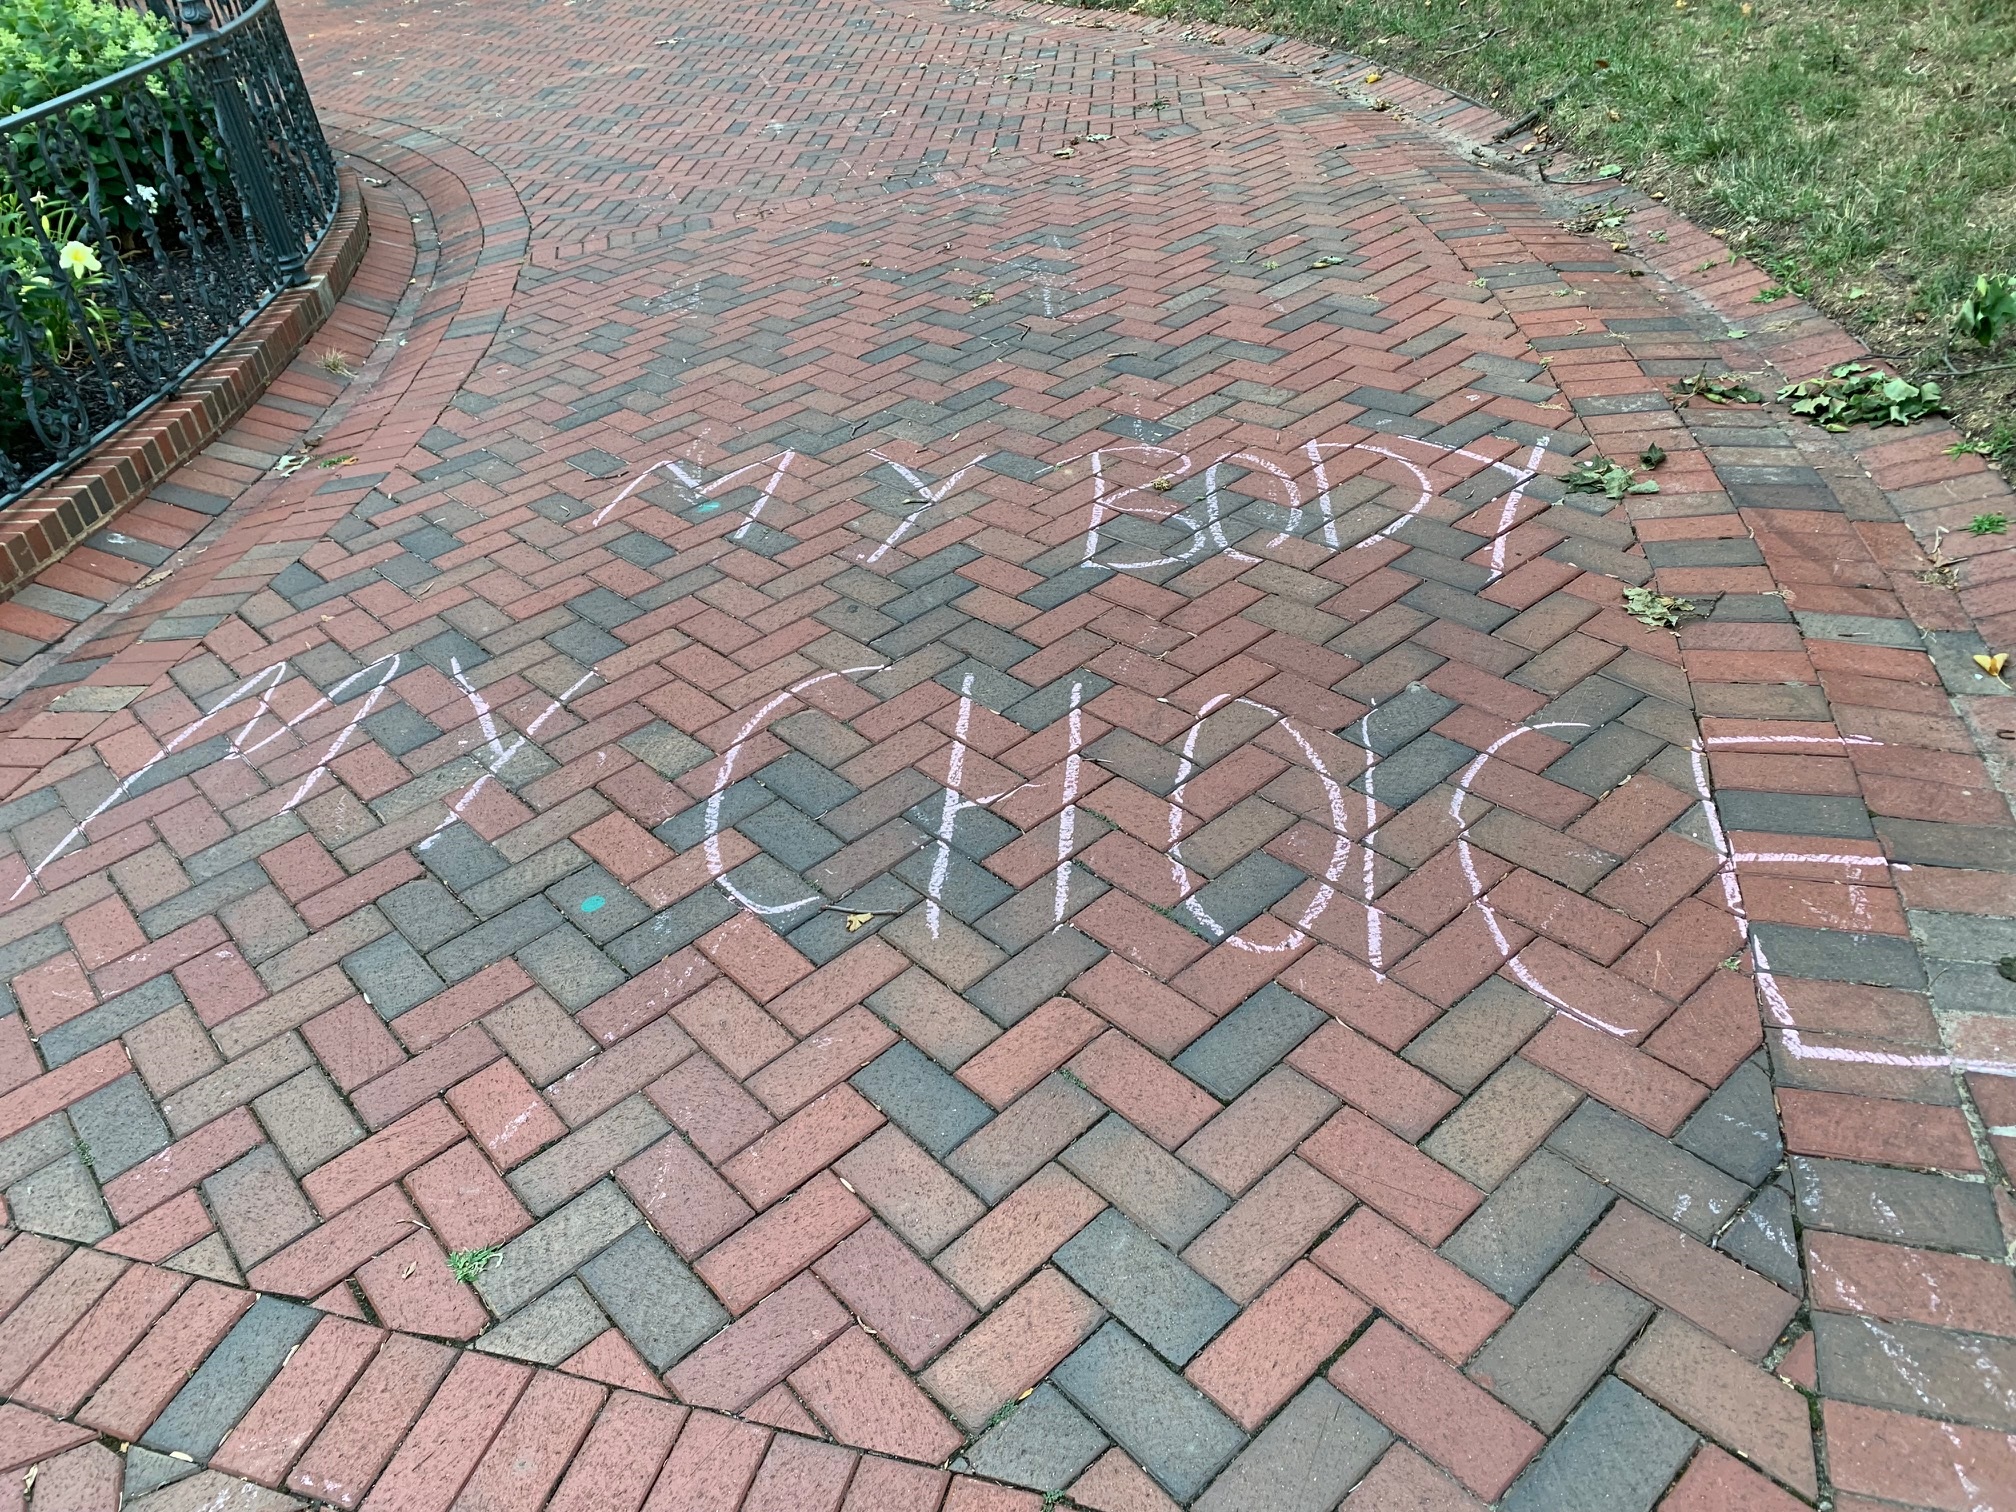 MY BODY
MY CHOICE